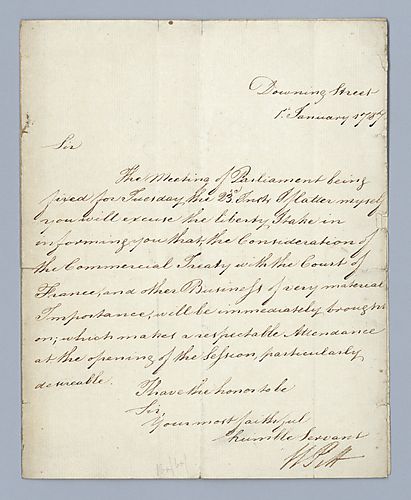 Downing Street
1st January 1787
Sir
The Meeting of Parliament being
fixed for Tuesday the 23d. Inst. I flatter myself
you will excuse the liberty I take in
informing you that the Consideration of
the Commercial Treaty with the Court of
France, and other Business of very material
Importance, will be immediately brought
on, which makes a respectable Attendance
at the opening of the Session, particularly
desireable.
I have the honor to be
Sir,
Your most faithful
humble Servant
W Pitt